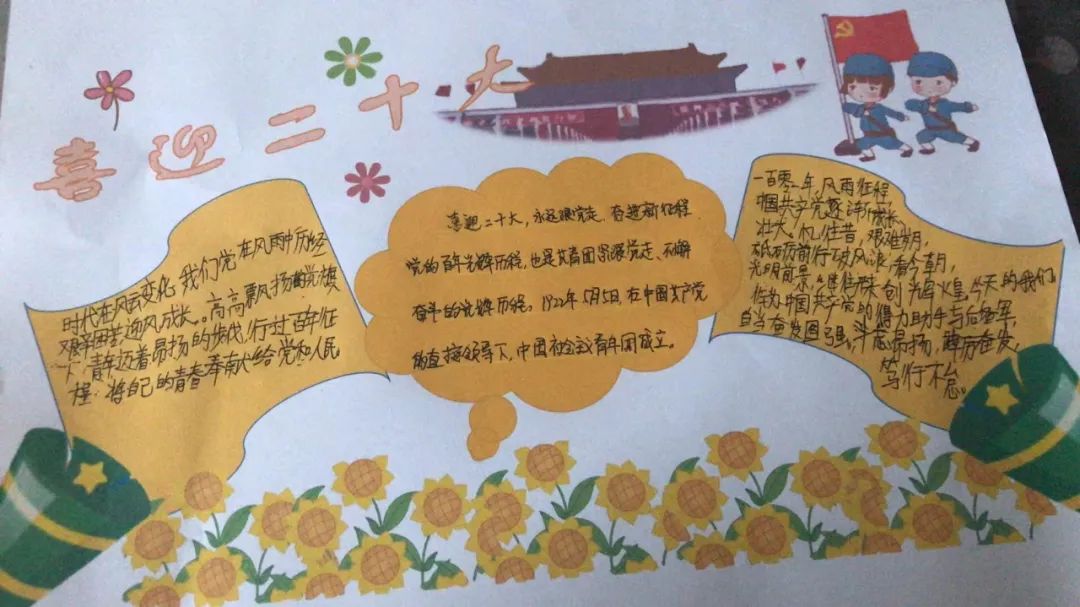 喜迎二十大
时代在风云变化,我们党在风雨中历经
艰辛困苦,迎风成长。高高飘扬的党旗
下,青年迈着昂扬的步伐,行过百年征
程:将自己的青春奉献给党和人民
喜迎二十大,永远跟党走,奋进新征程
党的百年光辉历程,也是共青团紧跟党走、不懈
奋斗的光辉历程。1922年5月5日,在中国共产党
的直接领导下,中国社会主义青年团成立。
一百零二年,风雨征程,
中国共产党逐详成长
壮大。忆往昔,艰难岁月,
砥砺前行破风浪;看今朝,
光明前景,继往开来创辉煌。今天的我们
作为中国共产党的得力助手与后备军,
自当奋发图强,斗志昂扬,踔厉奋发,
笃行不怠。